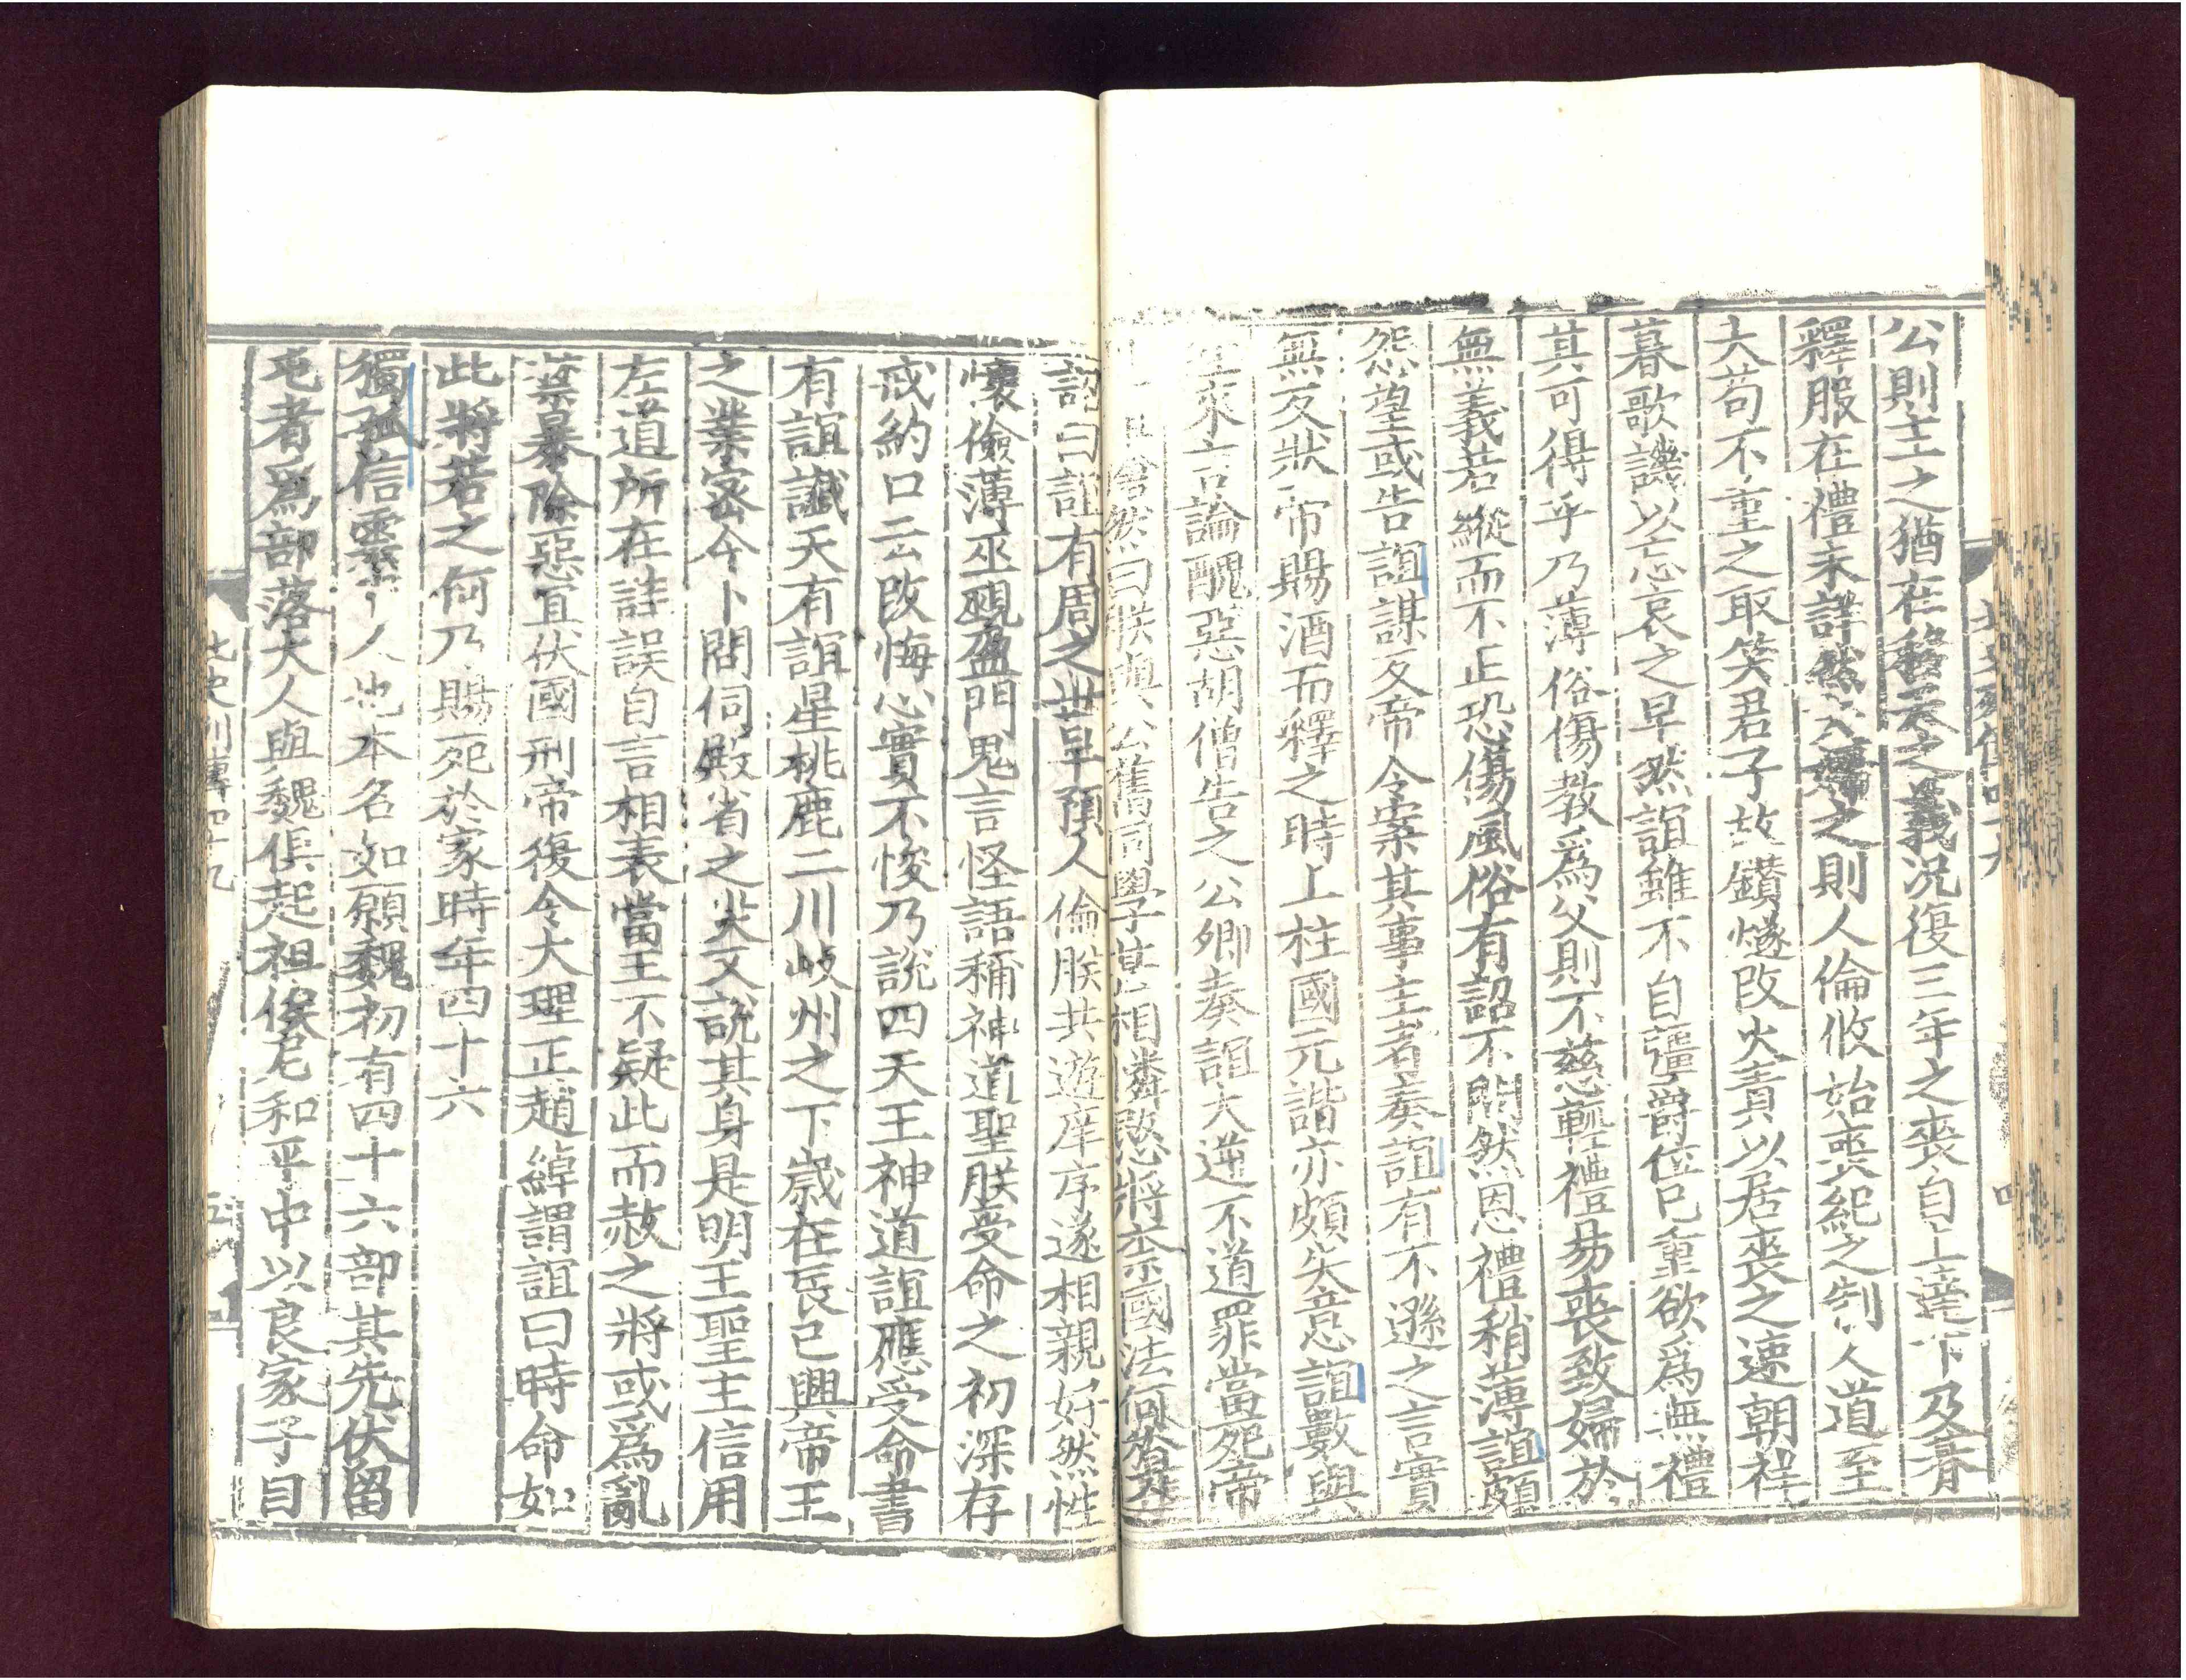 公則主之猶在移天之義況復三年之喪自上達下及朞
釋服在禮未詳然夫婦之則人倫攸始喪紀之制人道至
大苟不重之取笑君子故鑽燧改火責以居喪之速朝祥
暮歌譏以忘哀之早然誼雖不自彊爵位已重欲爲無禮
其可得乎乃薄俗傷教爲父則不慈輕禮易喪致婦於
無義若縱而不正恐傷風俗有詔不問然恩禮稍薄誼頗
怨望或告誼謀反帝令案其事主者奏誼有不遜之言實
無反狀帝賜酒而釋之時上柱國元諧亦頗失意誼數與
往來言論醜惡胡僧告之公卿奏誼大逆不道罪當死帝
愴然曰朕與公舊同學甚相憐愍將柰國法何於是
詔曰誼有周之世早預人倫朕共遊庠序遂相親好然性
懷儉薄巫覡盈門鬼言怪語稱神道聖朕受命之初深存
戒約口云改悔心實不悛乃說四天王神道誼應受命書
有誼讖天有誼星桃鹿二川岐州之下歲在辰巳興帝王
之業密令卜問伺殿省之災又說其身是明王聖主信用
左道所在詿誤自言相表當王不疑此而赦之將或爲亂
禁暴除惡宜伏國刑帝復令大理正趙綽謂誼曰時命如
此將若之何乃賜死於家時年四十六
獨孤信雲人也本名如願魏初有四十六部其先伏留
屯者爲部落大人與魏俱起祖俟尼和平中以良家子自
北史列傳四十九
五